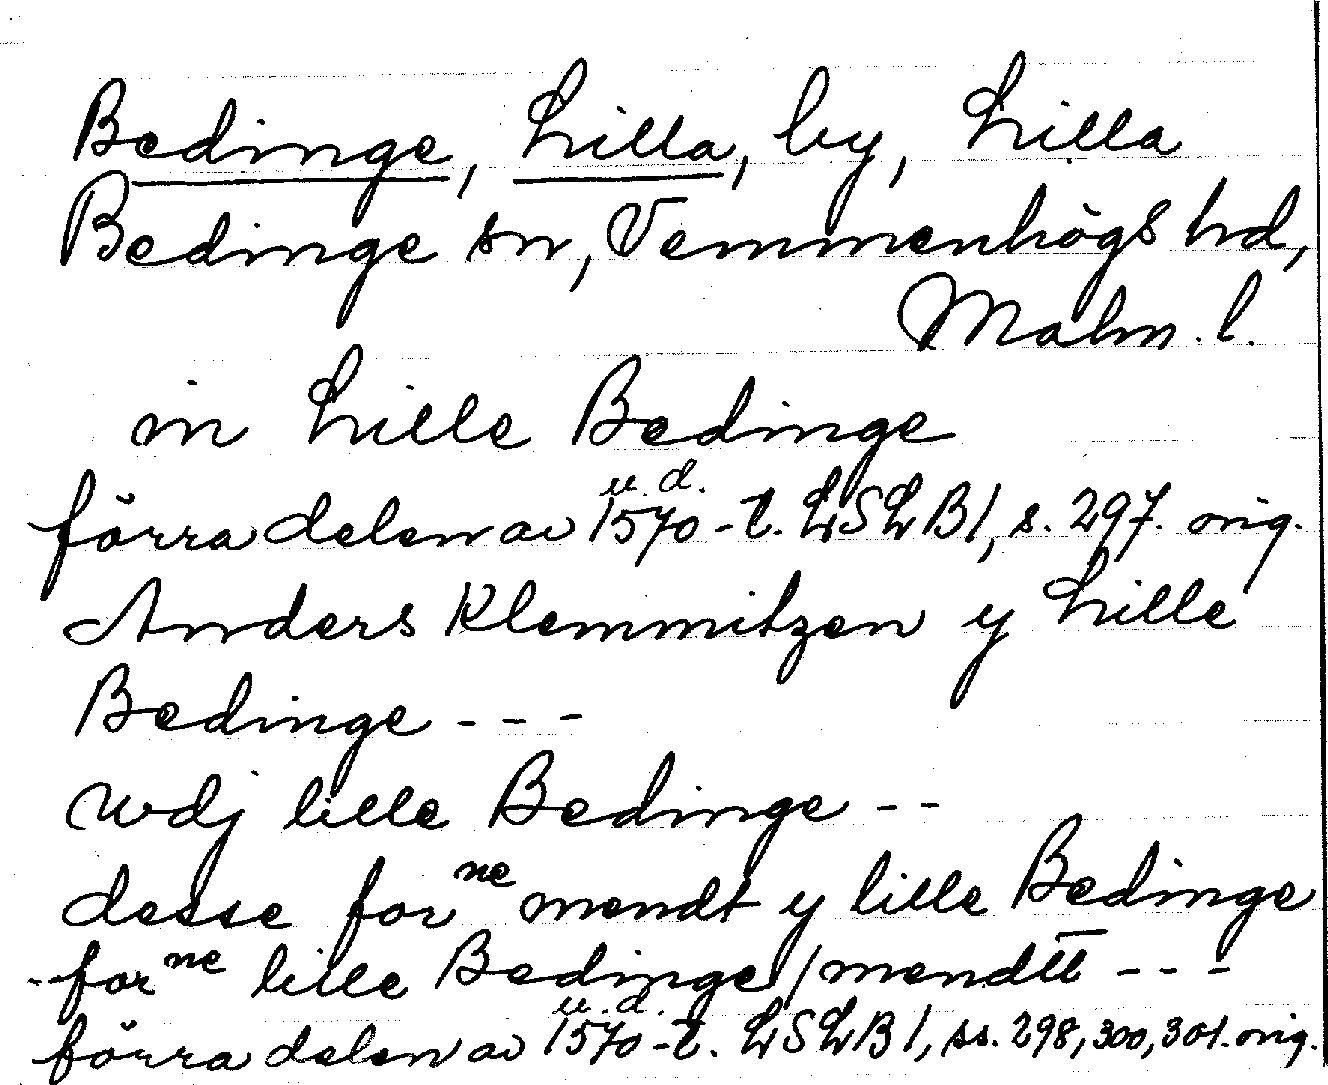 Bedinge, Lilla, by, Lilla
Bedinge sn, Vemmenhögs hd,
Malm. l.
in Lille Bedinge
förra delen av 1570-t. LSLB1, s. 297. orig.
u. d.
Anders Klemmitzen y Lille
Bedinge - - -
wdj lille Bedinge - -
desse for ne mendt y lille Bedinge
- for ne lille Bedinge / mendtt - - -
u. d.
förra delen av 1570-t. LSLB1, ss. 298, 300, 301. orig.